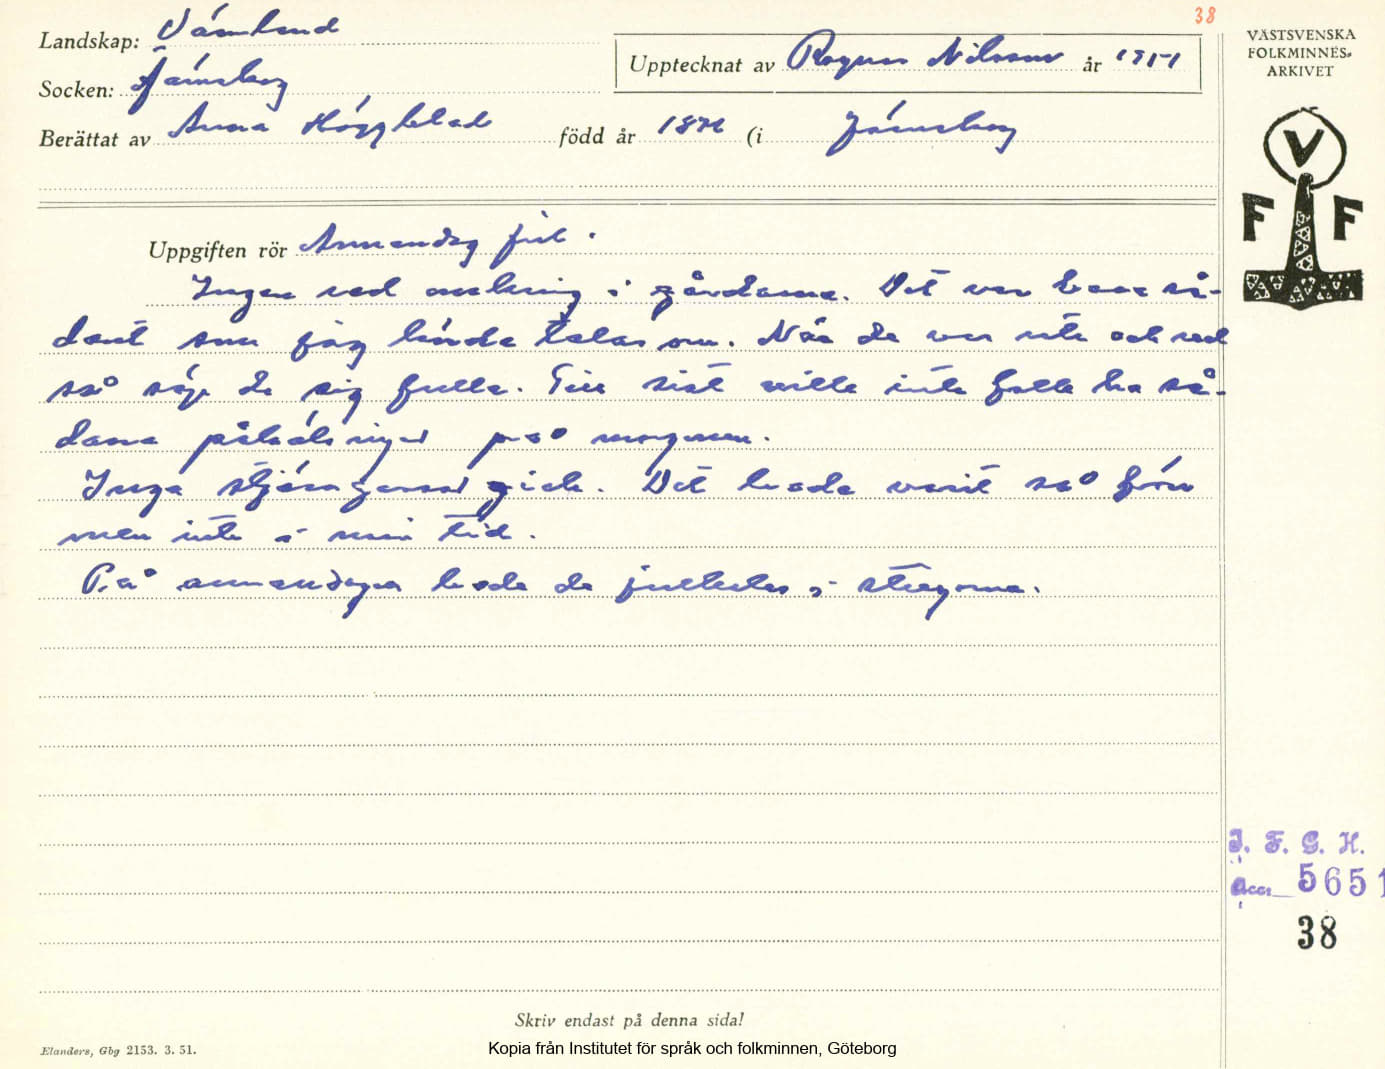 38
Landskap: Värmland
Upptecknat av Ragnar Nilsson år 1951
Socken: Järnskog
Berättat av Anna Höggblad född år 1872 (i Järnskog
VÄSTSVENSKA
FOLKMINNES-
ARKIVET
V
F F
Uppgiften rör Annandag jul.
Ingen red omkring i gårdarna. Det var bara så-
dant som jag hörde talas om. När de var ute och red
så söp de sig fulla. Till sist ville inte folk ha så-
dana påhälsningar på morgonen.
Inga stjärngossar gick. Det hade varit så förr
men inte i min tid.
På annandagen hade de jullekar i stugorna.
I. F. G. H.
Acc. 5651
38
Skriv endast på denna sida!
Elanders, Gbg 2153. 3. 51.
Kopia från Institutet för språk och folkminnen, Göteborg